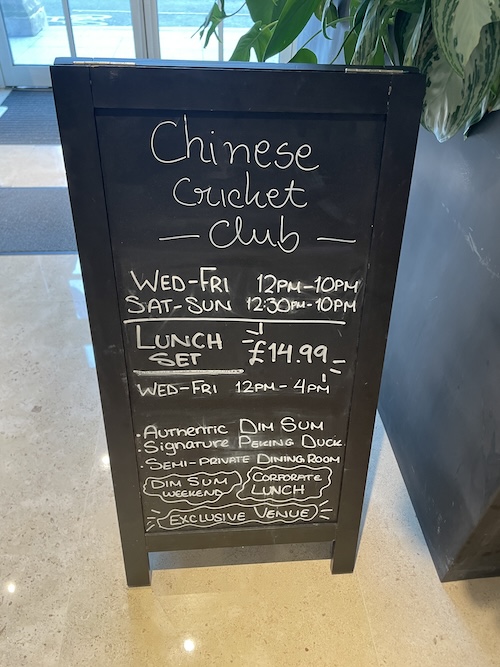 Chinese
Cricket
— Club —
WED-FRI 12PM-10PM
SAT-SUN 12:30PM-10PM
LUNCH
SET
£14.99
WED-FRI 12PM - 4PM
· AUTHENTIC DIM SUM
· SIGNATURE PEKING DUCK
· SEMI-PRIVATE DINING ROOM
DIM SUM
WEEKEND
CORPORATE
LUNCH
EXCLUSIVE VENUE